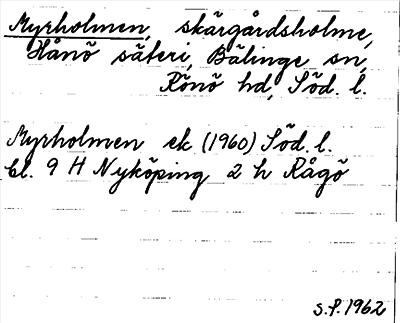 Myrholmen, skärgårdsholme,
Hånö säteri, Bälinge sn,
Rönö hd, Söd. l.
Myrholmen ek (1960) Söd. l.
bl. 9 H Nyköping 2 h Rågö
s.f. 1962